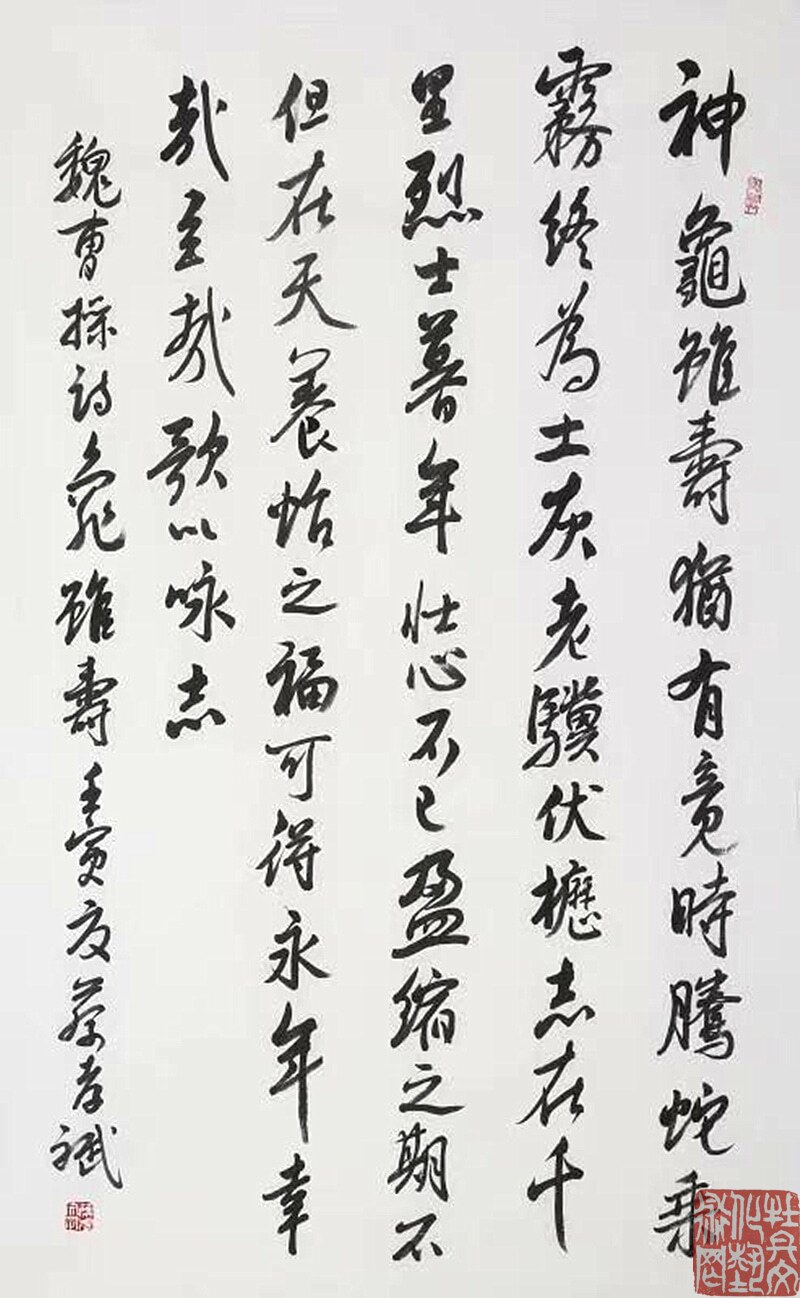 神龜雖壽猶有竟時騰蛇乘
霧終為土灰老驥伏櫪志在千
里烈士暮年壯心不已盈縮之期不
但在天養怡之福可得永年幸
哉至哉歌以咏志
魏曹操詩龜雖壽壬寅夏蔡孝斌
牡丹文化藝術網